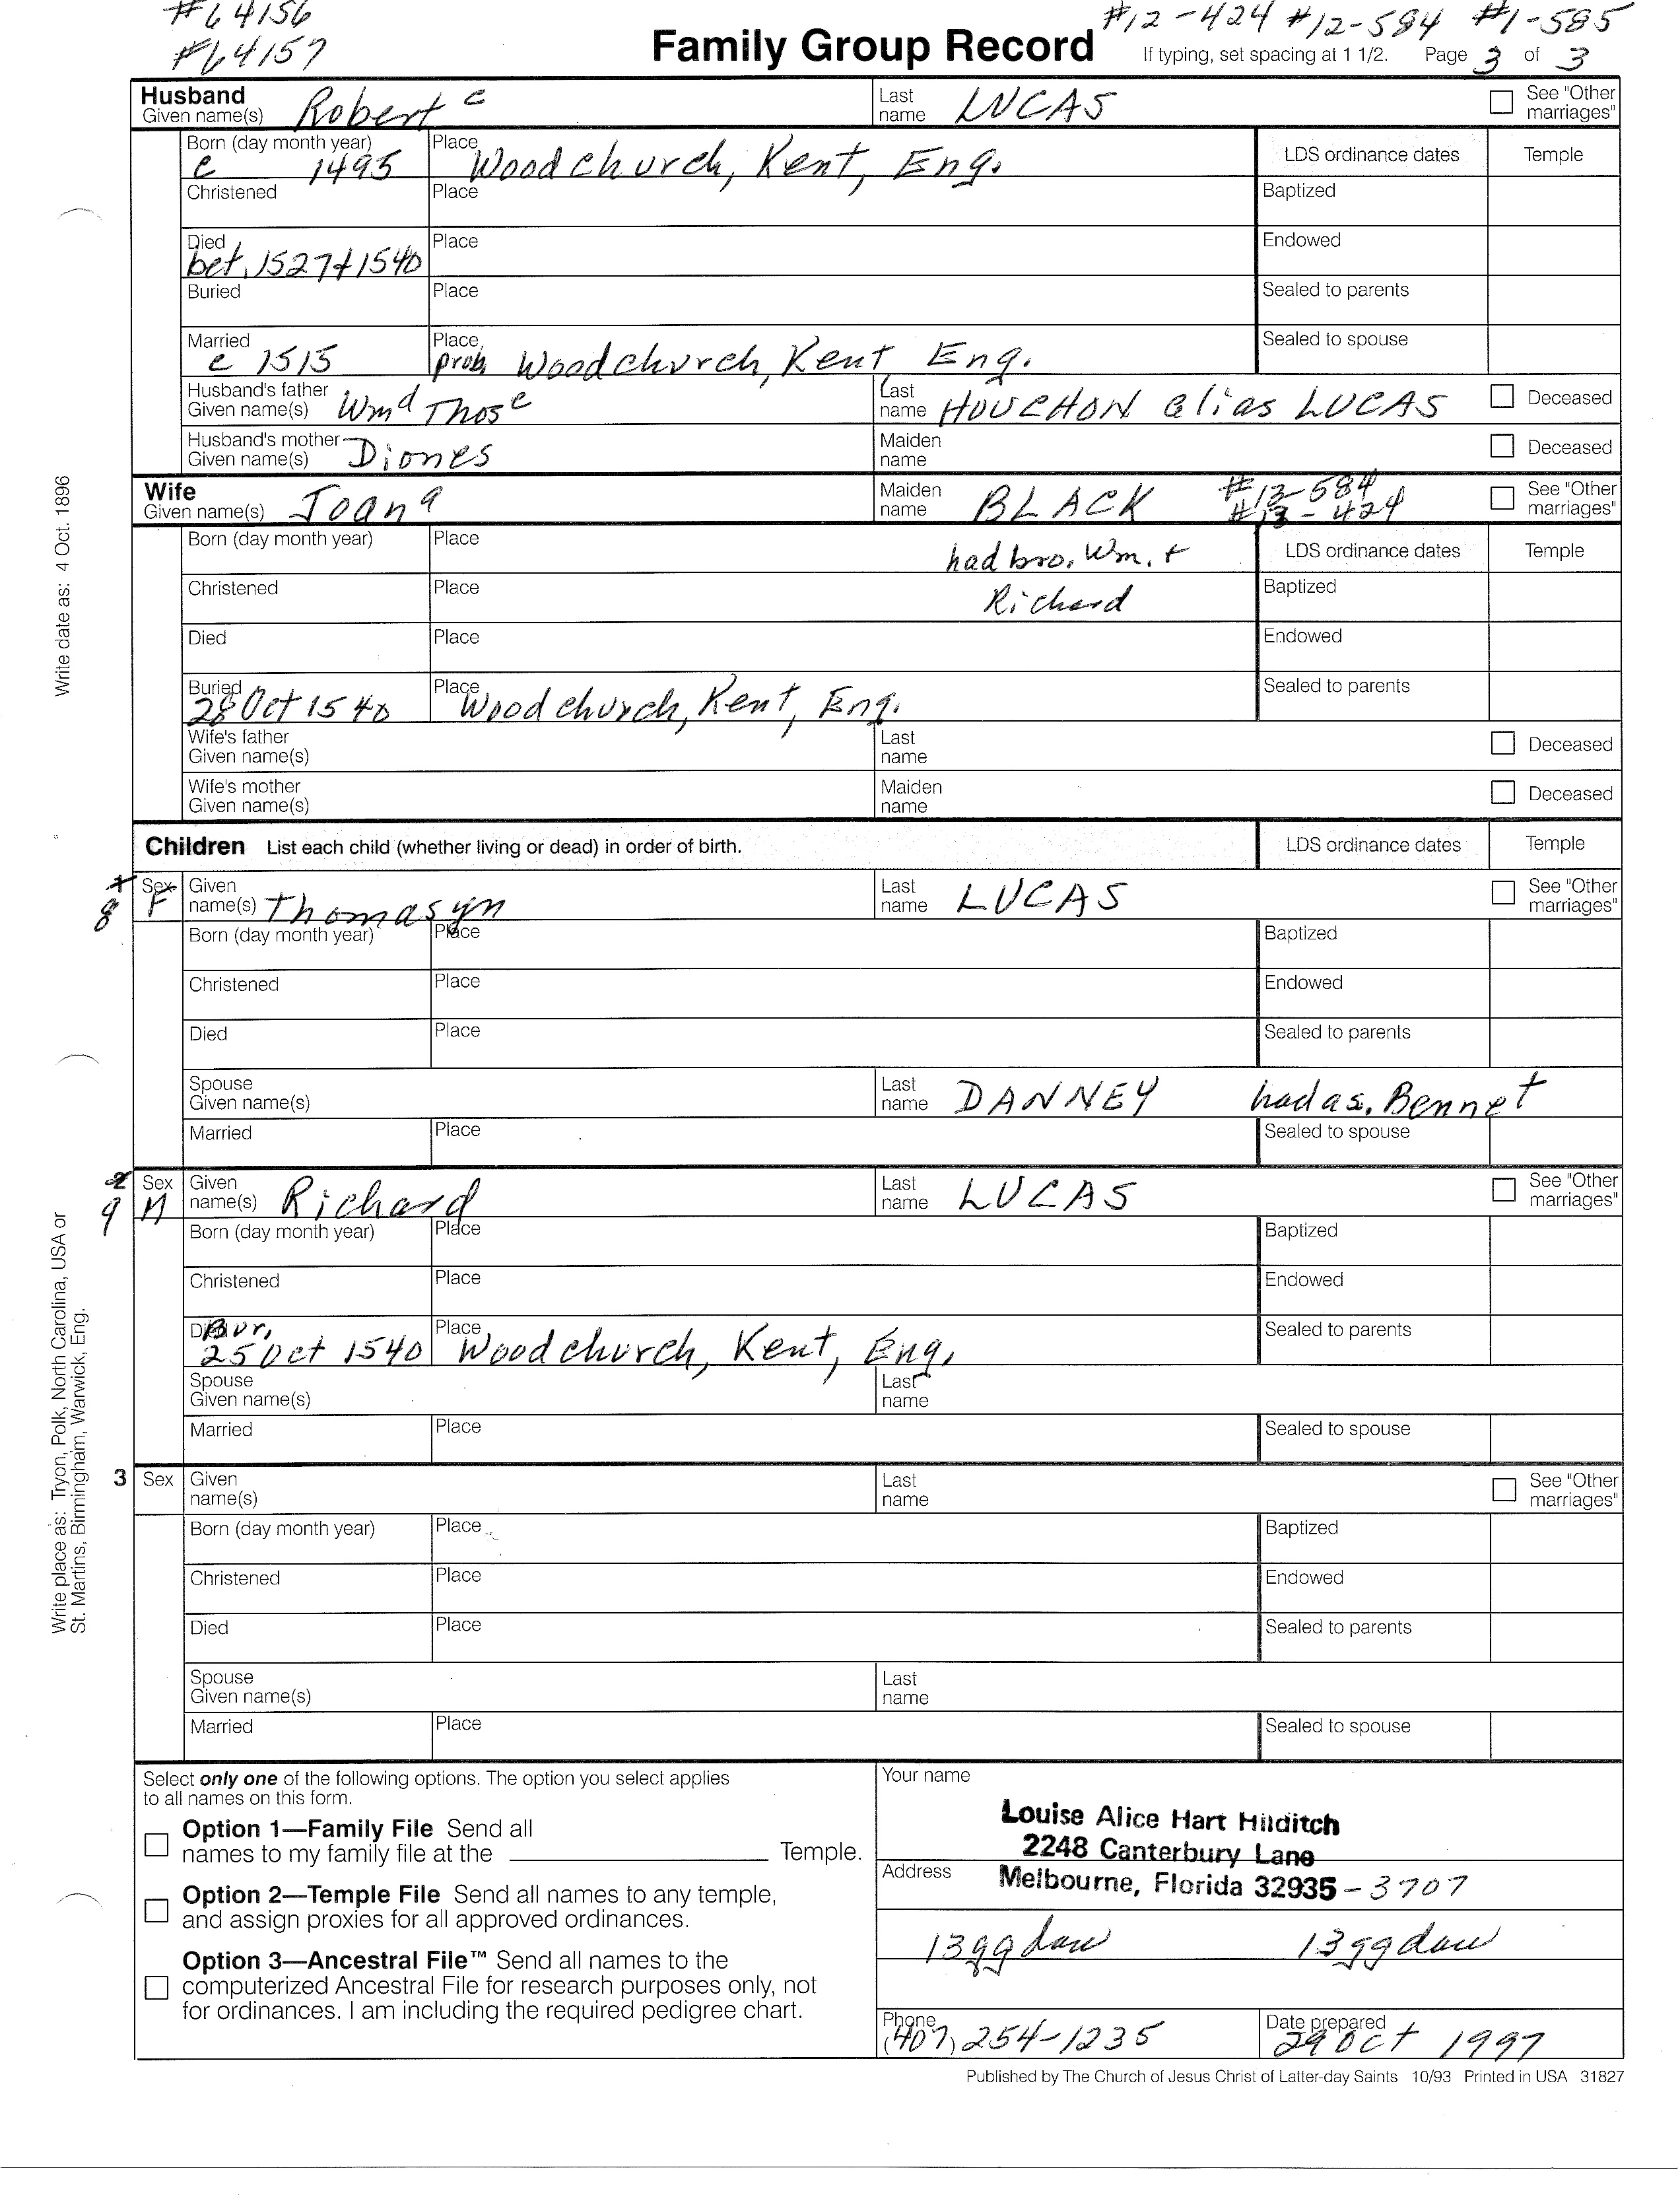 #64156
#64157
#12-424 #12-584 #1-585
Family Group Record
If typing, set spacing at 1 1/2. Page 3 of 3
Husband
Given name(s) Robert c
Last name LUCAS
See "Other marriages"
Born (day month year) c 1495
Place Woodchurch, Kent, Eng.
LDS ordinance dates
Temple
Christened
Place
Baptized
Died bet. 1527+1540
Place
Endowed
Buried
Place
Sealed to parents
Married c 1515
Place prob. Woodchurch, Kent Eng.
Sealed to spouse
Husband's father Given name(s) Wm d Thos c
Last name HOUCHON alias LUCAS
Deceased
Husband's mother Given name(s) Diones
Maiden name
Deceased
Wife
Given name(s) Joan a
Maiden name BLACK #13-584
#13-424
See "Other marriages"
Born (day month year)
Place
had bro. Wm. +
Richard
LDS ordinance dates
Temple
Christened
Place
Baptized
Died
Place
Endowed
Buried 28 Oct 1540
Place Woodchurch, Kent, Eng.
Sealed to parents
Wife's father Given name(s)
Last name
Deceased
Wife's mother Given name(s)
Maiden name
Deceased
Children List each child (whether living or dead) in order of birth.
LDS ordinance dates
Temple
8 Sex F
Given name(s) Thomasyn
Last name LUCAS
See "Other marriages"
Born (day month year)
Place
Baptized
Christened
Place
Endowed
Died
Place
Sealed to parents
Spouse Given name(s)
Last name DANNEY had a s. Bennet
Married
Place
Sealed to spouse
2
9 Sex M
Given name(s) Richard
Last name LUCAS
See "Other marriages"
Born (day month year)
Place
Baptized
Christened
Place
Endowed
Died Bur. 25 Oct 1540
Place Woodchurch, Kent, Eng.
Sealed to parents
Spouse Given name(s)
Last name
Married
Place
Sealed to spouse
3 Sex
Given name(s)
Last name
See "Other marriages"
Born (day month year)
Place
Baptized
Christened
Place
Endowed
Died
Place
Sealed to parents
Spouse Given name(s)
Last name
Married
Place
Sealed to spouse
Select only one of the following options. The option you select applies
to all names on this form.
Option 1—Family File Send all
names to my family file at the Temple.
Option 2—Temple File Send all names to any temple,
and assign proxies for all approved ordinances.
Option 3—Ancestral File™ Send all names to the
computerized Ancestral File for research purposes only, not
for ordinances. I am including the required pedigree chart.
Your name
Louise Alice Hart Hilditch
2248 Canterbury Lane
Address
Melbourne, Florida 32935-3707
13ggdau 13ggdau
Phone (407) 254-1235
Date prepared 29 Oct 1997
Published by The Church of Jesus Christ of Latter-day Saints 10/93 Printed in USA 31827
Write date as: 4 Oct. 1896
Write place as: Tryon, Polk, North Carolina, USA or
St. Martins, Birmingham, Warwick, Eng.